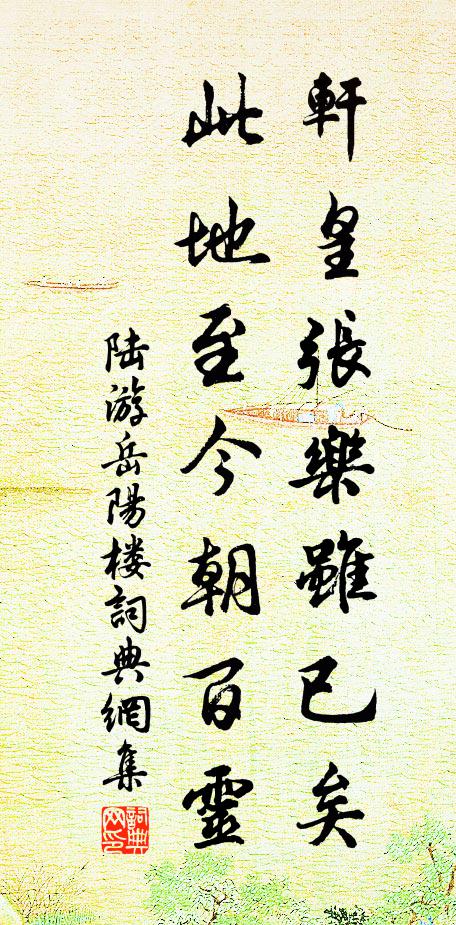 軒皇張樂雖已矣
此地至今朝百靈
陸游岳陽楼詞典網集
詞典網印